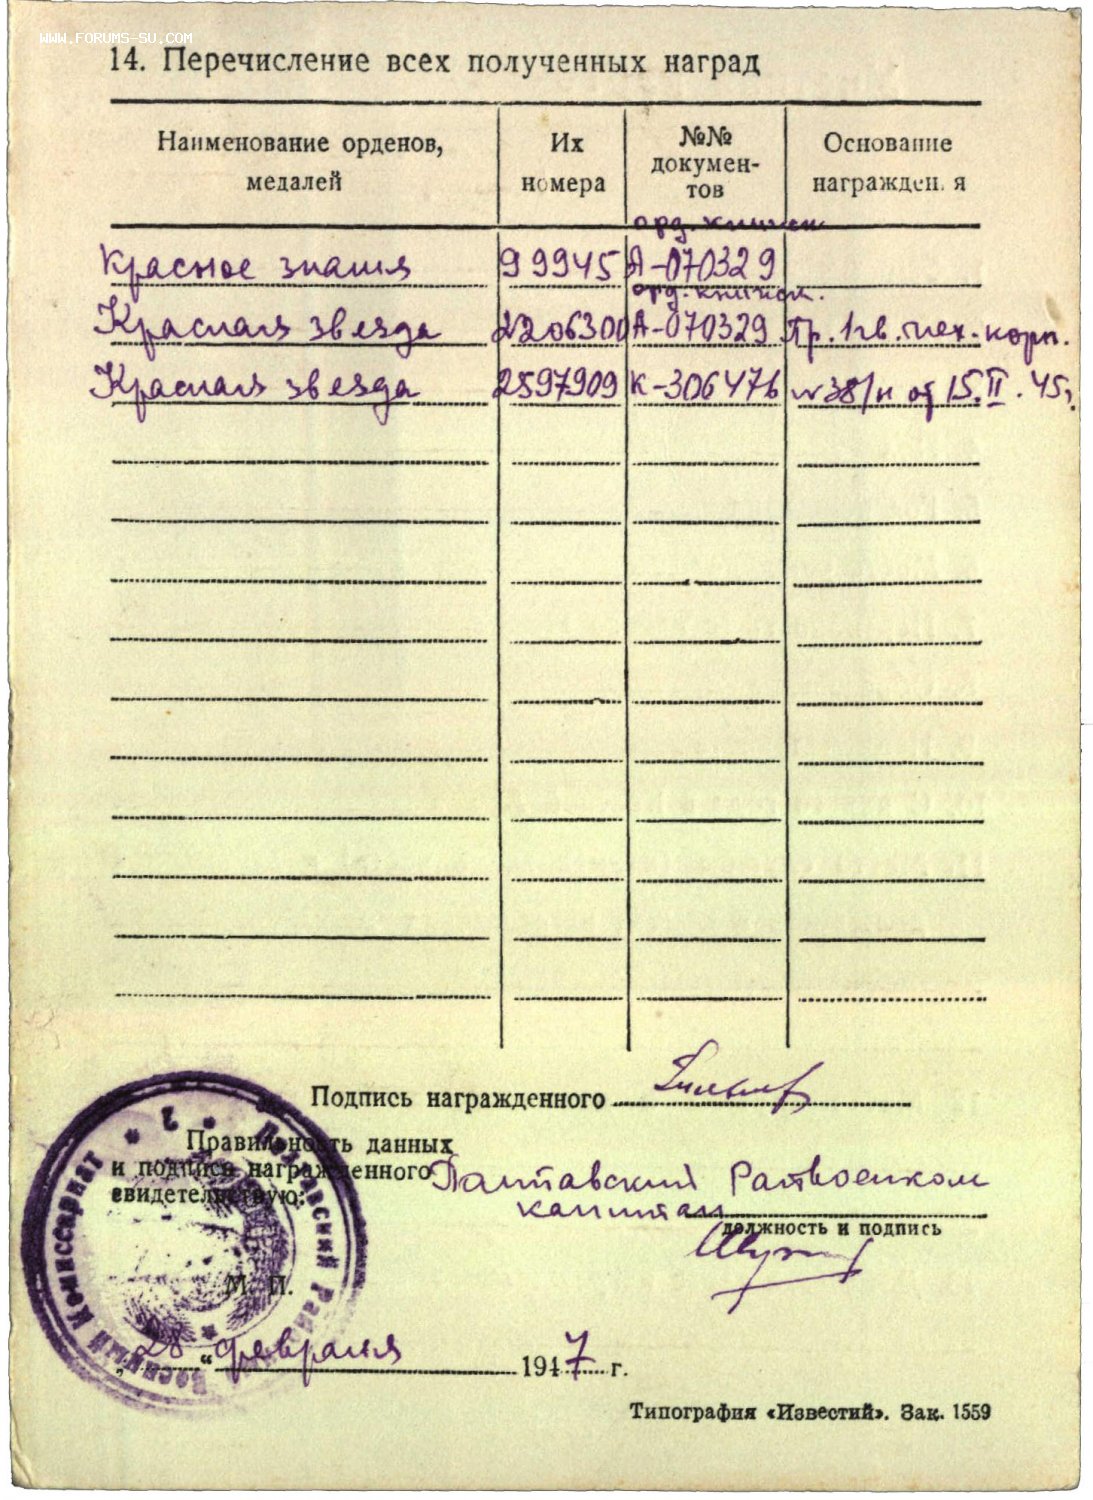 WWW.FORUMS-SU.COM
14. Перечисление всех полученных наград
Наименование орденов, медалей
Их номера
№№ документов
Основание награжден. я
орд. книжк
Красное знамя 99945 А-070329
орд. книжк.
Красная звезда 2206300 А-070329 Пр. 1 гв. мех. корп.
Красная звезда 2597909 К-306476 № 38/н от 15.II.45г.
Подпись награжденного
Правильность данных
и подписи награжденного
свидетельствую:
Райвоенком
капитан
должность и подпись
М. П.
„28“ февраля 1947 г.
Военный Комиссариат
Типография «Известий». Зак. 1559